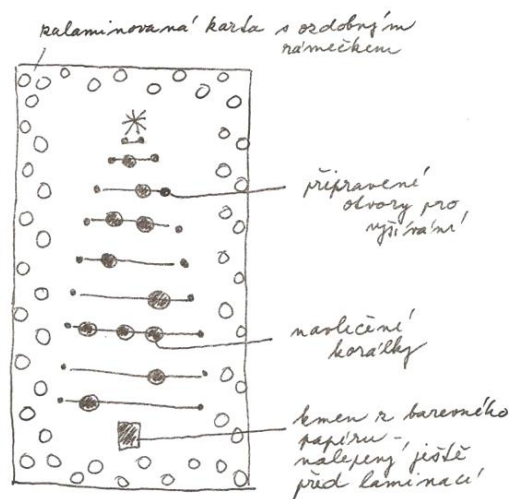 zalaminovaná karta s ozdobným
rámečkem
připravené
otvory pro
vyšívání
navlečené
korálky
kmen z barevného
papíru -
nalepený ještě
před laminací